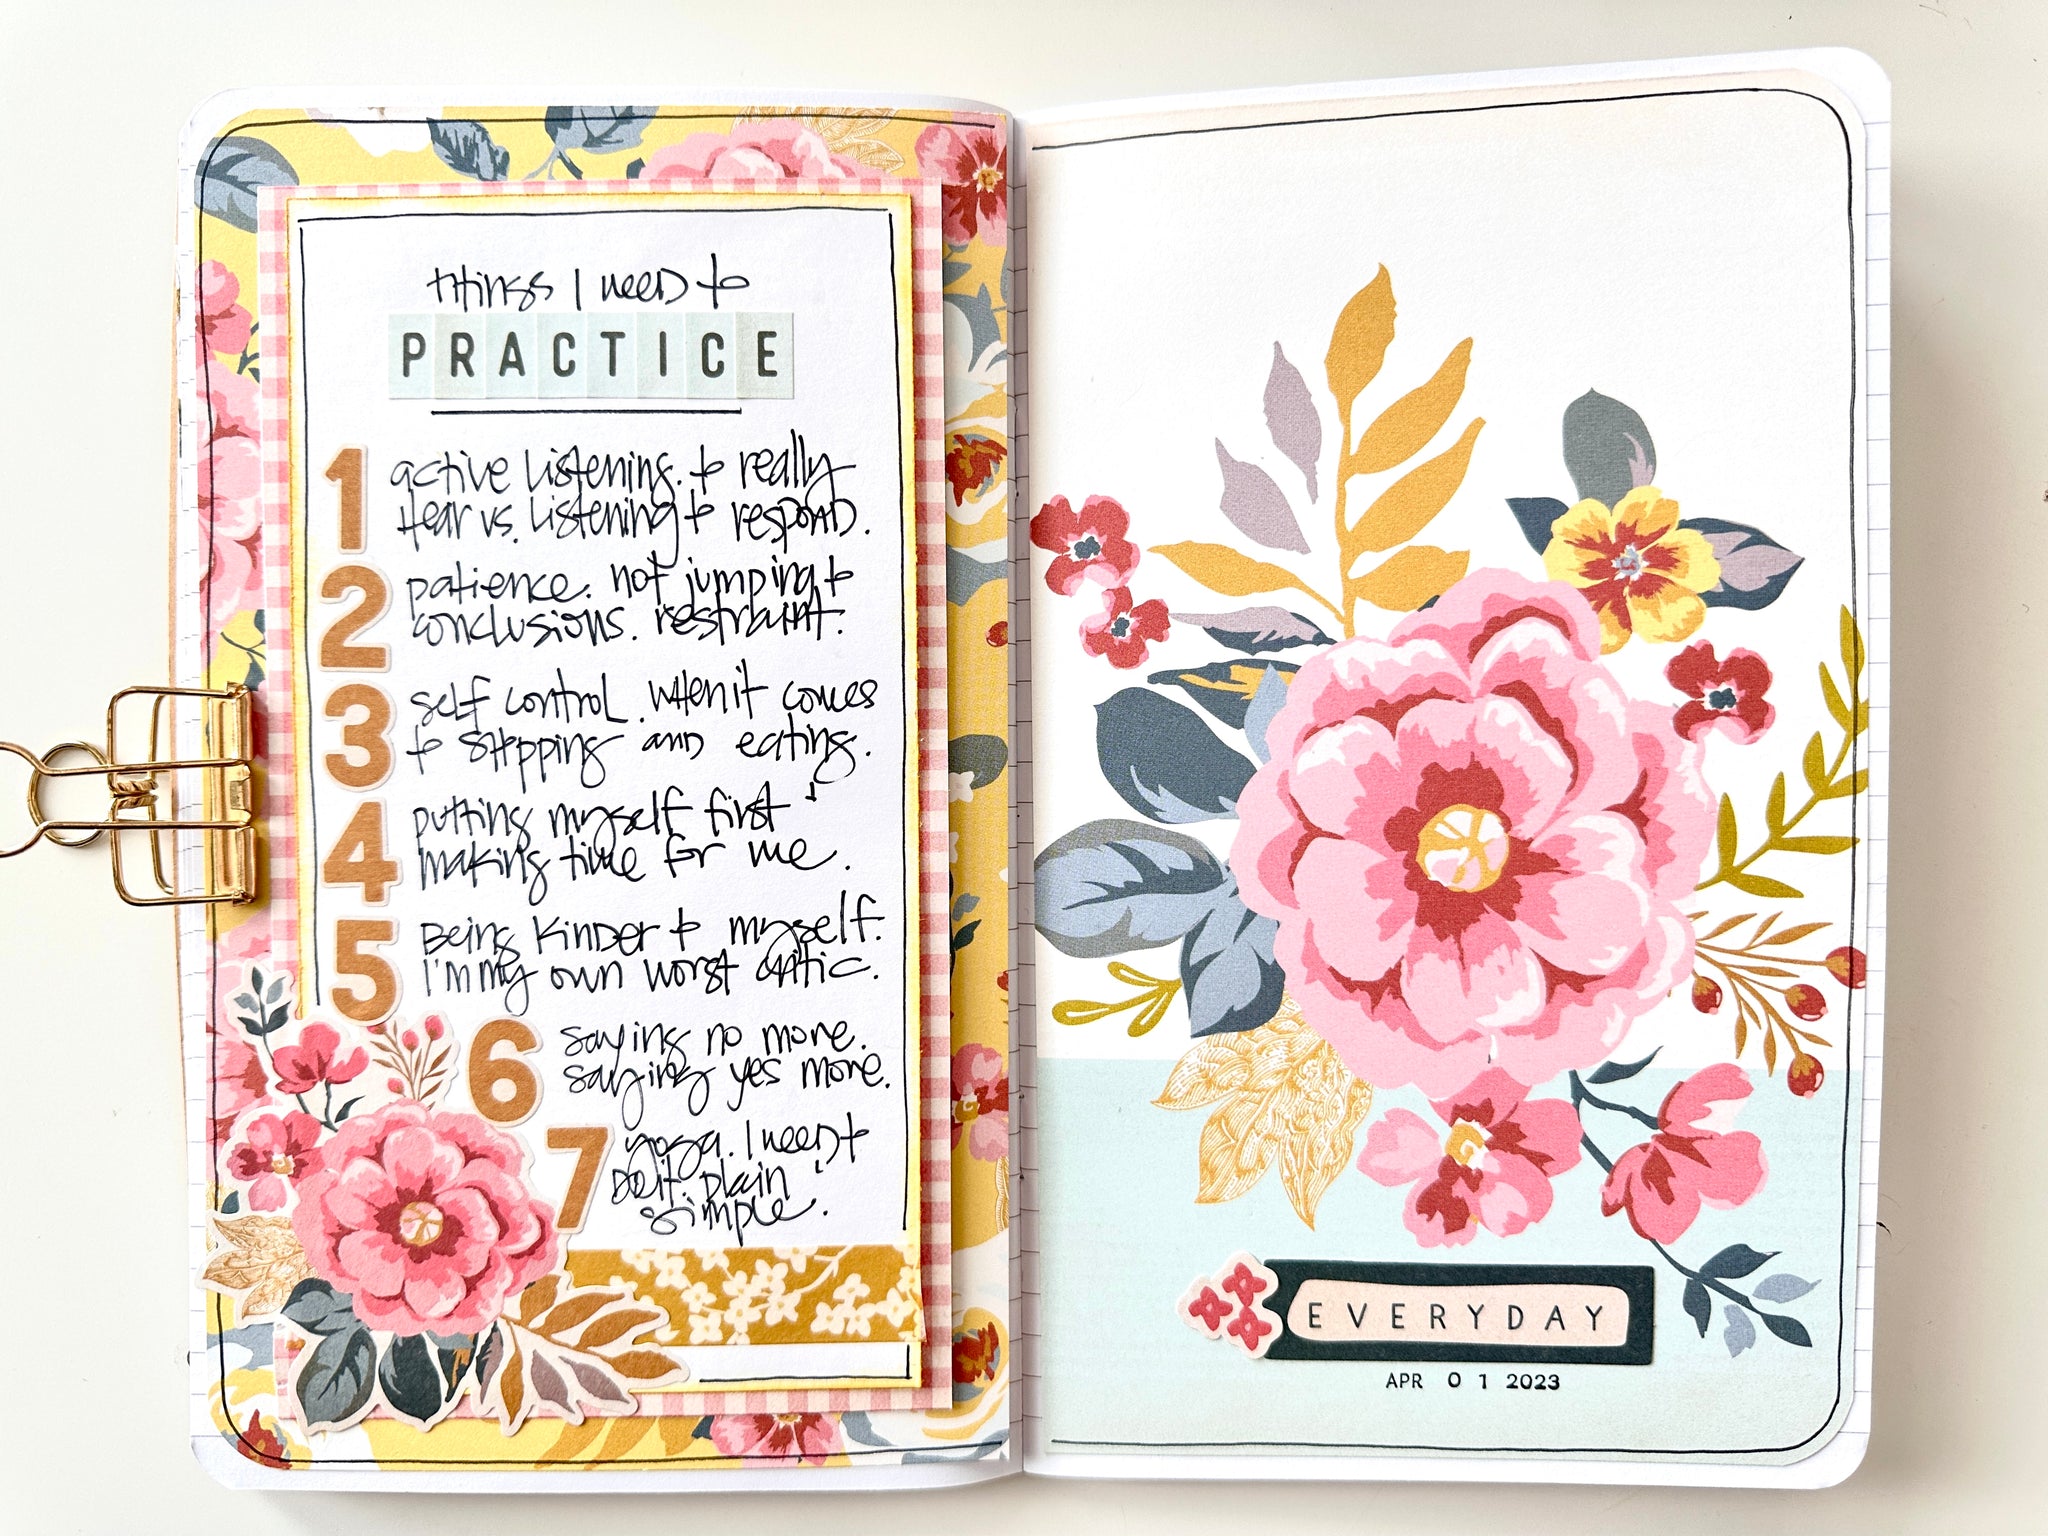 things I need to
PRACTICE
1 active listening. to really
hear vs. listening to respond.
2 patience. not jumping to
conclusions. restraint.
3 self control. when it comes
to shopping and eating.
4 putting myself first &
making time for me.
5 Being kinder to myself.
I'm my own worst critic.
6 saying no more.
saying yes more.
7 yoga. I need to
Do it. plain &
simple.
EVERYDAY
APR 01 2023